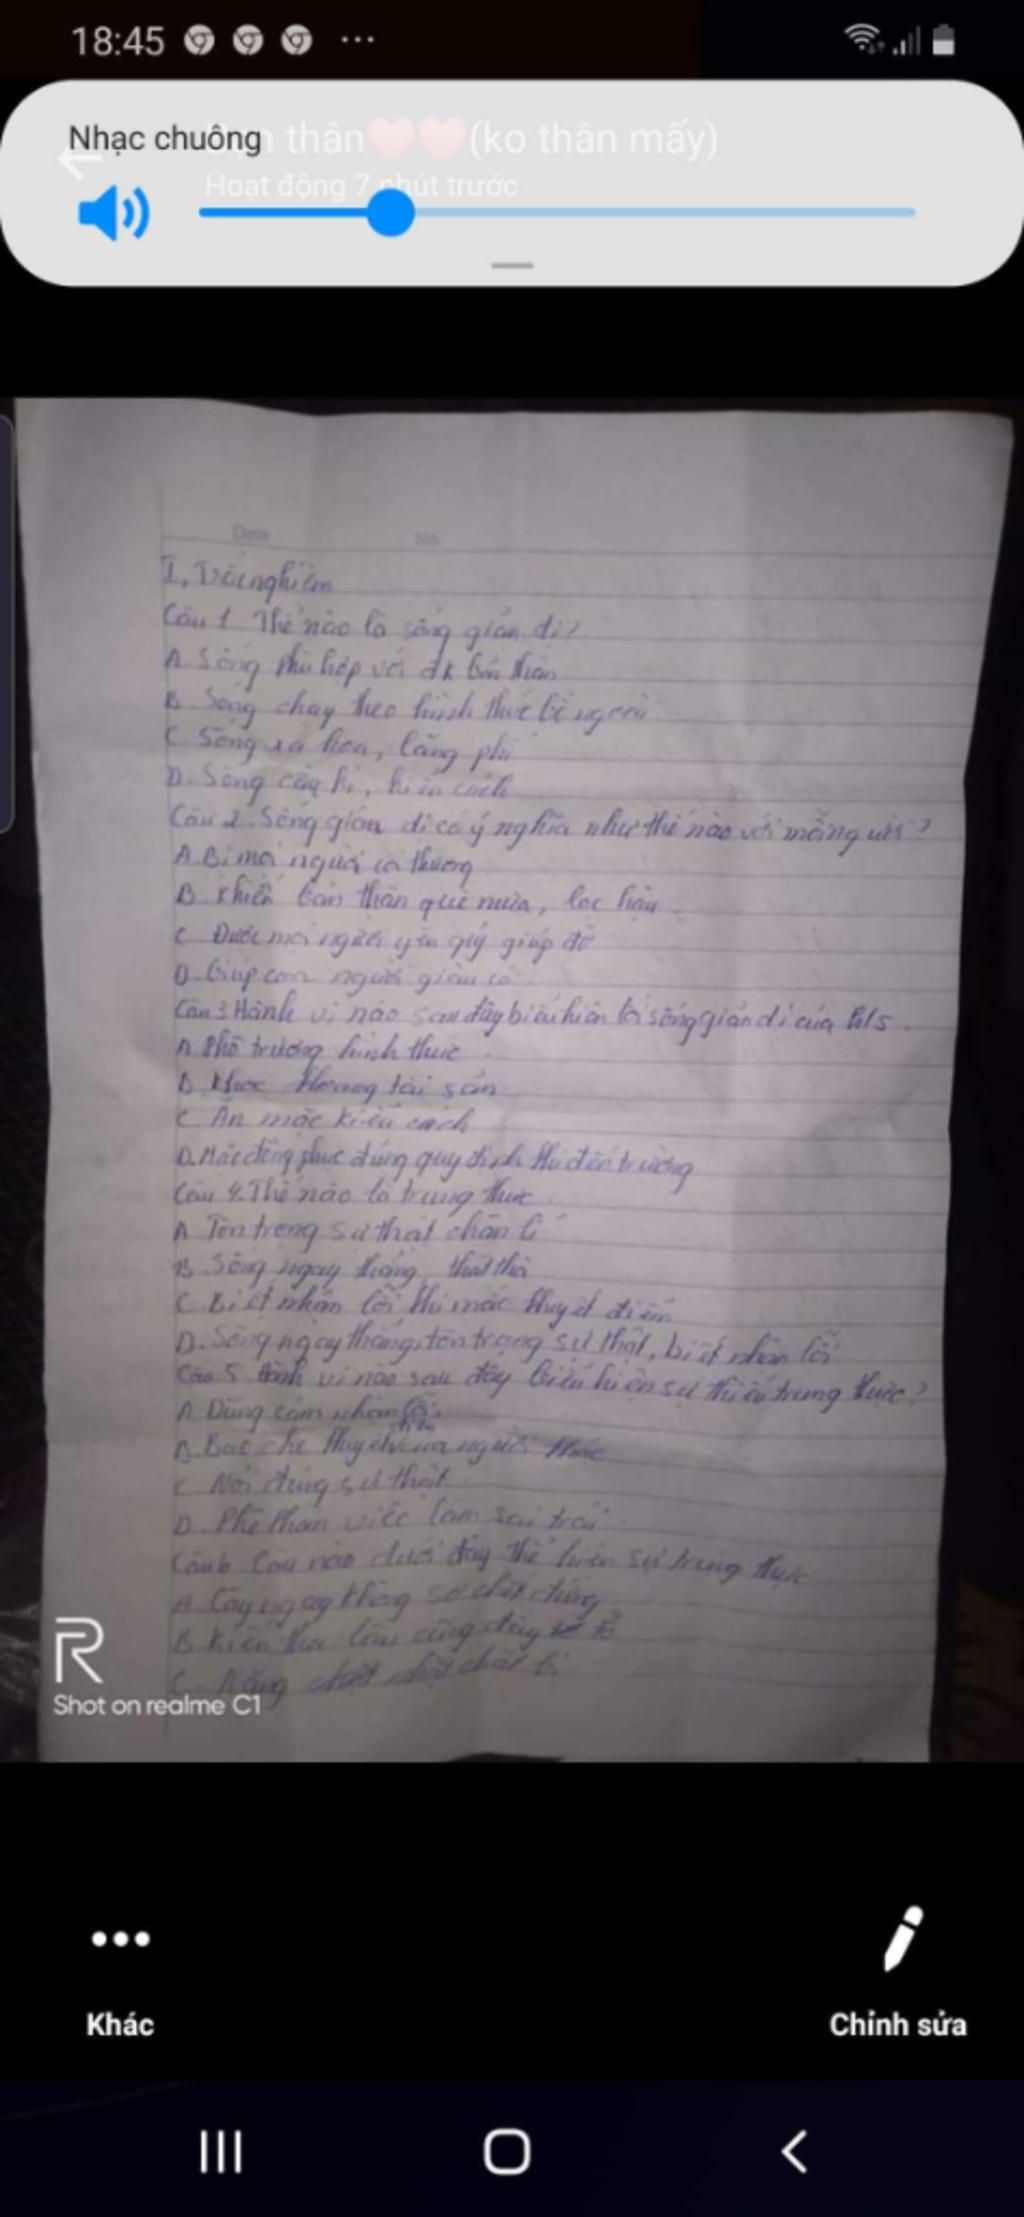 18:45
Nhạc chuông
thân (ko thân mấy)
Hoạt động 7 phút trước
Date No.
I, Trắc nghiệm
Câu 1 Thế nào là sống giản dị?
A. Sống phù hợp với đk bản thân
B. Sống chạy theo hình thức bề ngoài
C. Sống xa hoa, lãng phí
D. Sống cầu kì, kiểu cách
Câu 2. Sống giản dị có ý nghĩa như thế nào với mỗi người?
A. Bị mọi người thương
B. Khiến bản thân quê mùa, lạc hậu
C Được mọi người yêu quý giúp đỡ
D. Giúp con người giàu có
Câu 3 Hành vi nào sau đây biểu hiện lối sống giản dị của hls.
A. Phô trương hình thức.
B. Khoe khoang tài sản
C Ăn mặc kiểu cách
D. Mặc đồng phục đúng quy định khi đến trường
Câu 4. Thế nào là trung thực.
A Tôn trọng sự thật chân lí
B. Sống ngay thẳng, thật thà
C. Biết nhận lỗi khi mắc khuyết điểm
D. Sống ngay thẳng, tôn trọng sự thật, biết nhận lỗi
Câu 5. Hành vi nào sau đây biểu hiện sự thiếu trung thực?
A Dũng cảm nhận lỗi
B. Bao che khuyết của người khác
C Nói đúng sự thật.
D. Phê phán việc làm sai trái.
Câu 6. Câu nào dưới đây thể hiện sự trung thực
A Cây ngay không sợ chết đứng
B. Kiến tha lâu cũng đầy tổ
C. Năng nhặt chặt bị
R
Shot on realme C1
Khác
Chỉnh sửa